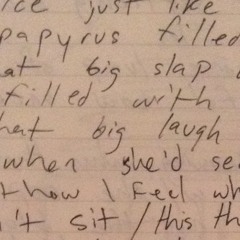 ice just like
papyrus filled
at big slap
filled with
hat big laugh
when she'd se
t how I feel wh
n't sit / this th